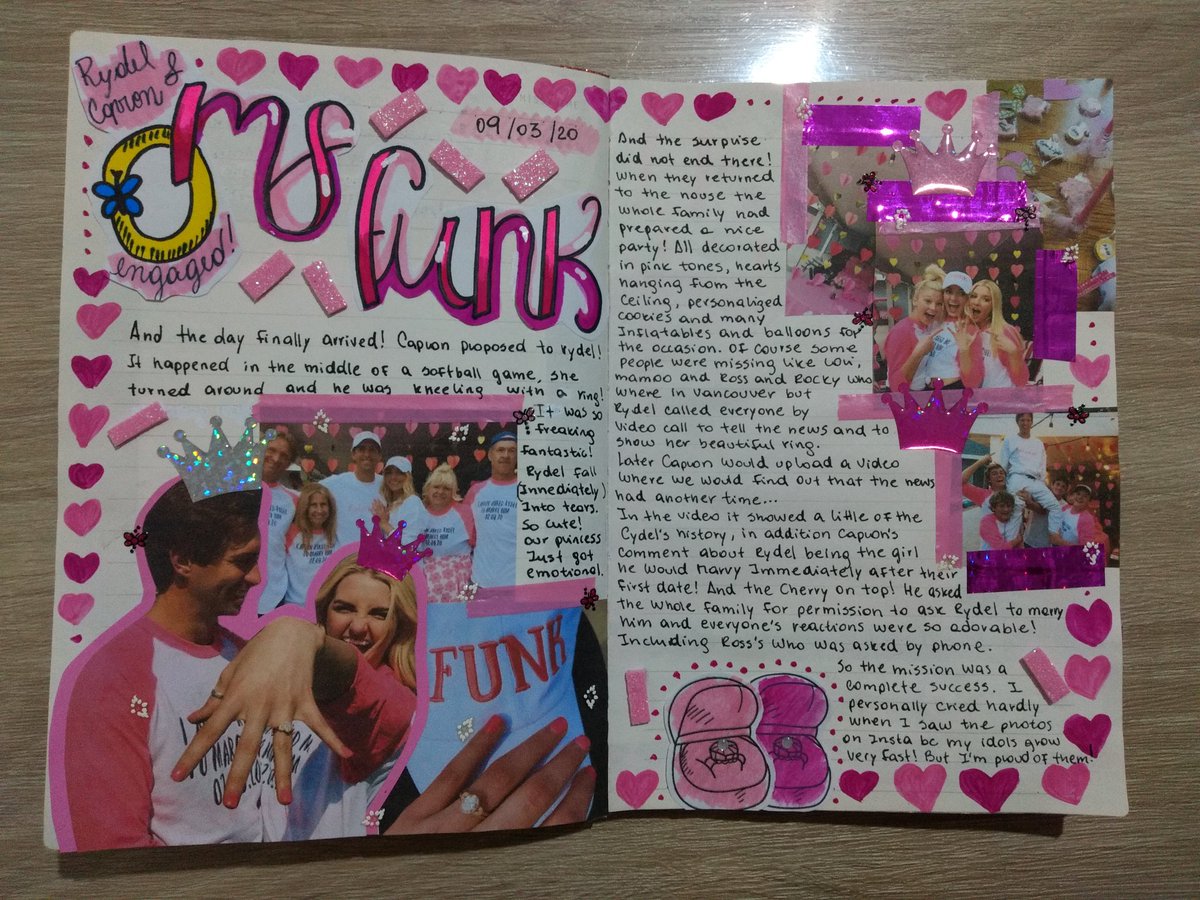 Rydel &
Capron
engaged!
OMG
Funk
09/03/20
And the day Finally arrived! Capron proposed to rydel!
It happened in the middle of a softball game, she
turned around and he was kneeling with a ring!
It was so
freaking
fantastic!
Rydel fall
(Innediately)
Into tears.
So cute!
our princess
Just got
emotional.
FUNK
And the surprise
did not end there!
When they returned
to the house the
whole Family had
prepared a nice
party! All decorated
in pink tones, hearts
hanging from the
Ceiling, personalized
cookies and many
Inflatables and balloons for
the occasion. Of course some
people were missing like Lovi,
mamoo and Ross and Rocky who
where in Vancouver but
Rydel called everyone by
Video call to tell the news and to
show her beautiful ring.
Later Capron would upload a video
where we would find out that the news
had another time...
In the video it showed a little of the
Cydel's history, in addition Capron's
comment about Rydel being the girl
he would Marry Immediately after their
First date! And the Cherry on top! He asked
the whole family for permission to ask Rydel to marry
him and everyone's reactions were so adorable!
Including Ross's who was asked by phone.
So the mission was a
complete success. I
personally cried hardly
when I saw the photos
on Insta bc my idols grow
very fast! But I'm proud of them!